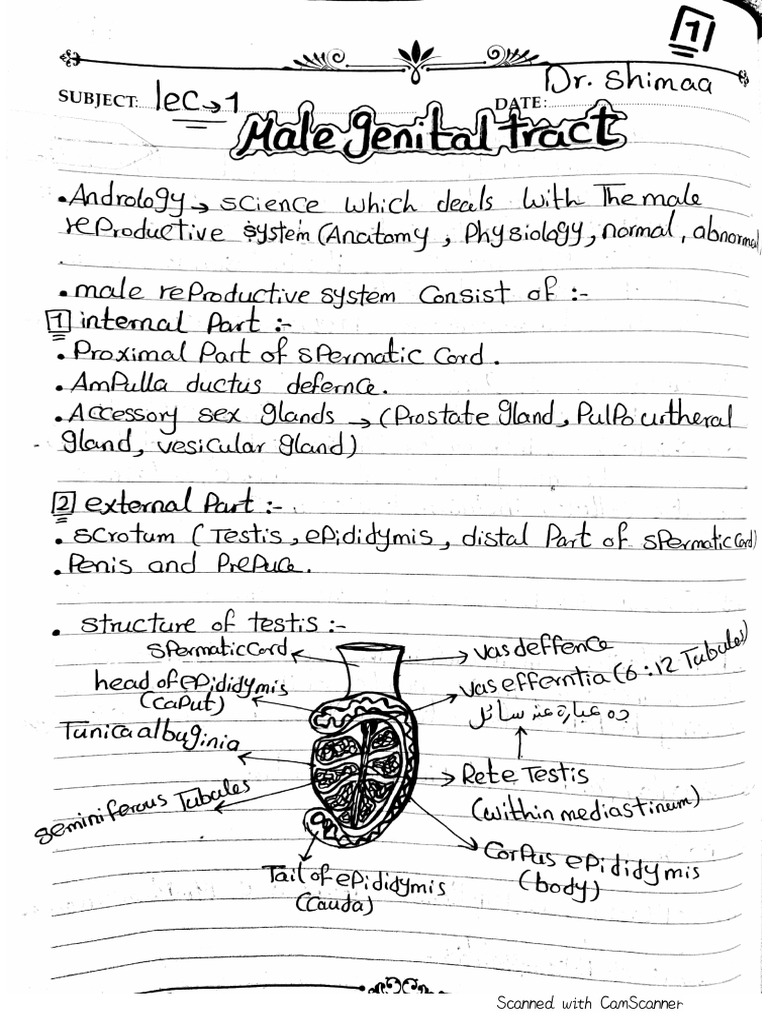 1
Dr. Shimaa
SUBJECT: lec → 1
DATE:
Male genital tract
• Andrology → science which deals with The male
reproductive system (Anatomy, Physiology, normal, abnormal
• male reproductive system Consist of :-
1 internal Part :-
• Proximal Part of spermatic Cord.
• Ampulla ductus defernce.
• Accessory sex glands → (Prostate gland, Pulpo urtheral
gland, vesicular gland)
2 external Part :-
• Scrotum (Testis, epididymis, distal Part of spermatic Cord)
• Penis and Prepuce.
• structure of testis :-
spermatic Cord
vas deffence
head of epididymis
(caput)
vas efferntia (6:12 Tubules)
ده عبارة عن سائل
Tunica albuginia
Rete Testis
(within mediastinum)
seminiferous Tubules
Corpus epididymis
(body)
Tail of epididymis
(Cauda)
Scanned with CamScanner